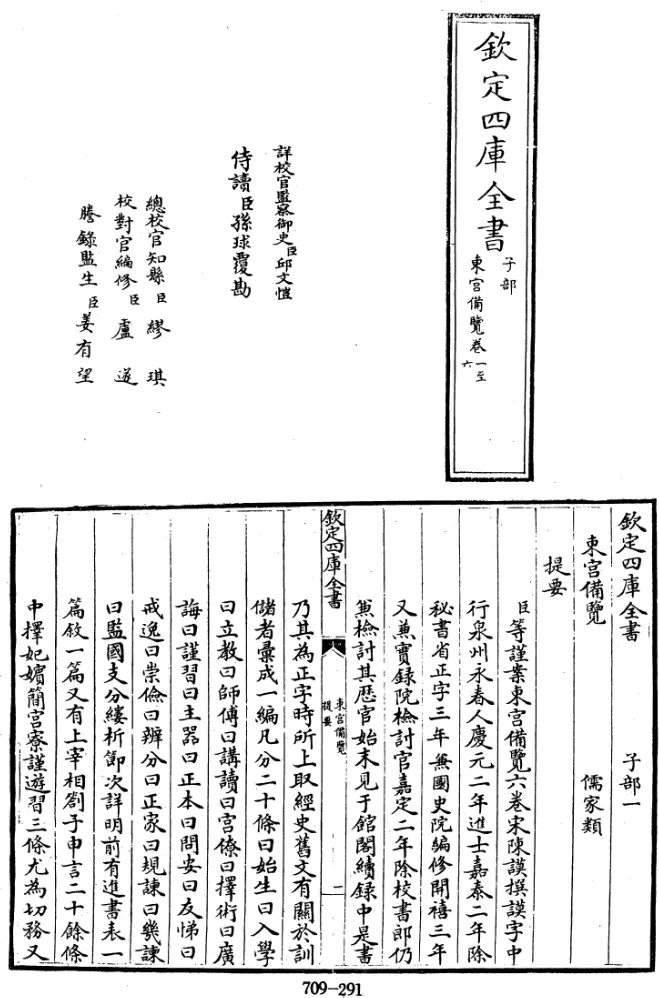 欽定四庫全書
子部
東宮備覽卷一至六
詳校官監察御史臣邱文愷
侍讀臣孫球覆勘
總校官知縣臣繆琪
校對官編修臣盧遂
謄錄監生臣姜有望
欽定四庫全書 子部一
東宮備覽 儒家類
提要
臣等謹案東宮備覽六卷宋陳謨撰謨字中
行泉州永春人慶元二年進士嘉泰二年除
秘書省正字三年兼國史院編修開禧三年
又兼實録院檢討官嘉定二年除校書郎仍
兼檢討其歷官始末見于館閣續録中是書
欽定四庫全書
東宮備覽
提要
一
乃其為正字時所上取經史舊文有關於訓
儲者彙成一編凡分二十條曰始生曰入學
曰立教曰師傅曰講讀曰宮僚曰擇術曰廣
誨曰謹習曰主器曰正本曰問安曰友悌曰
戒逸曰崇儉曰辨分曰正家曰規諫曰幾諫
曰監國支分縷析節次詳明前有進書表一
篇敘一篇又有上宰相劄子申言二十餘條
中擇妃嬪簡宮寮謹遊習三條尤為切務又
709-291